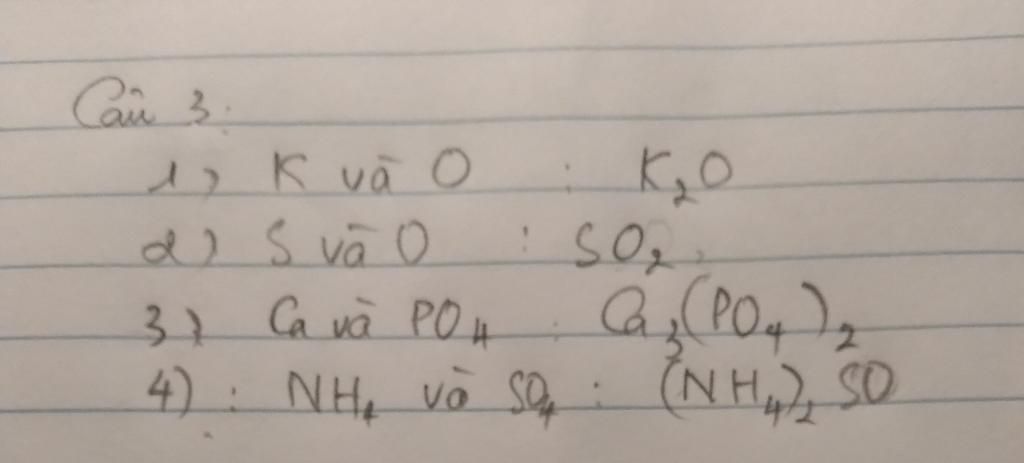 Câu 3:
1) K và O : K₂O
2) S và O : SO₂.
3) Ca và PO₄ : Ca₃(PO₄)₂
4) : NH₄ và SO₄ : (NH₄)₂ SO